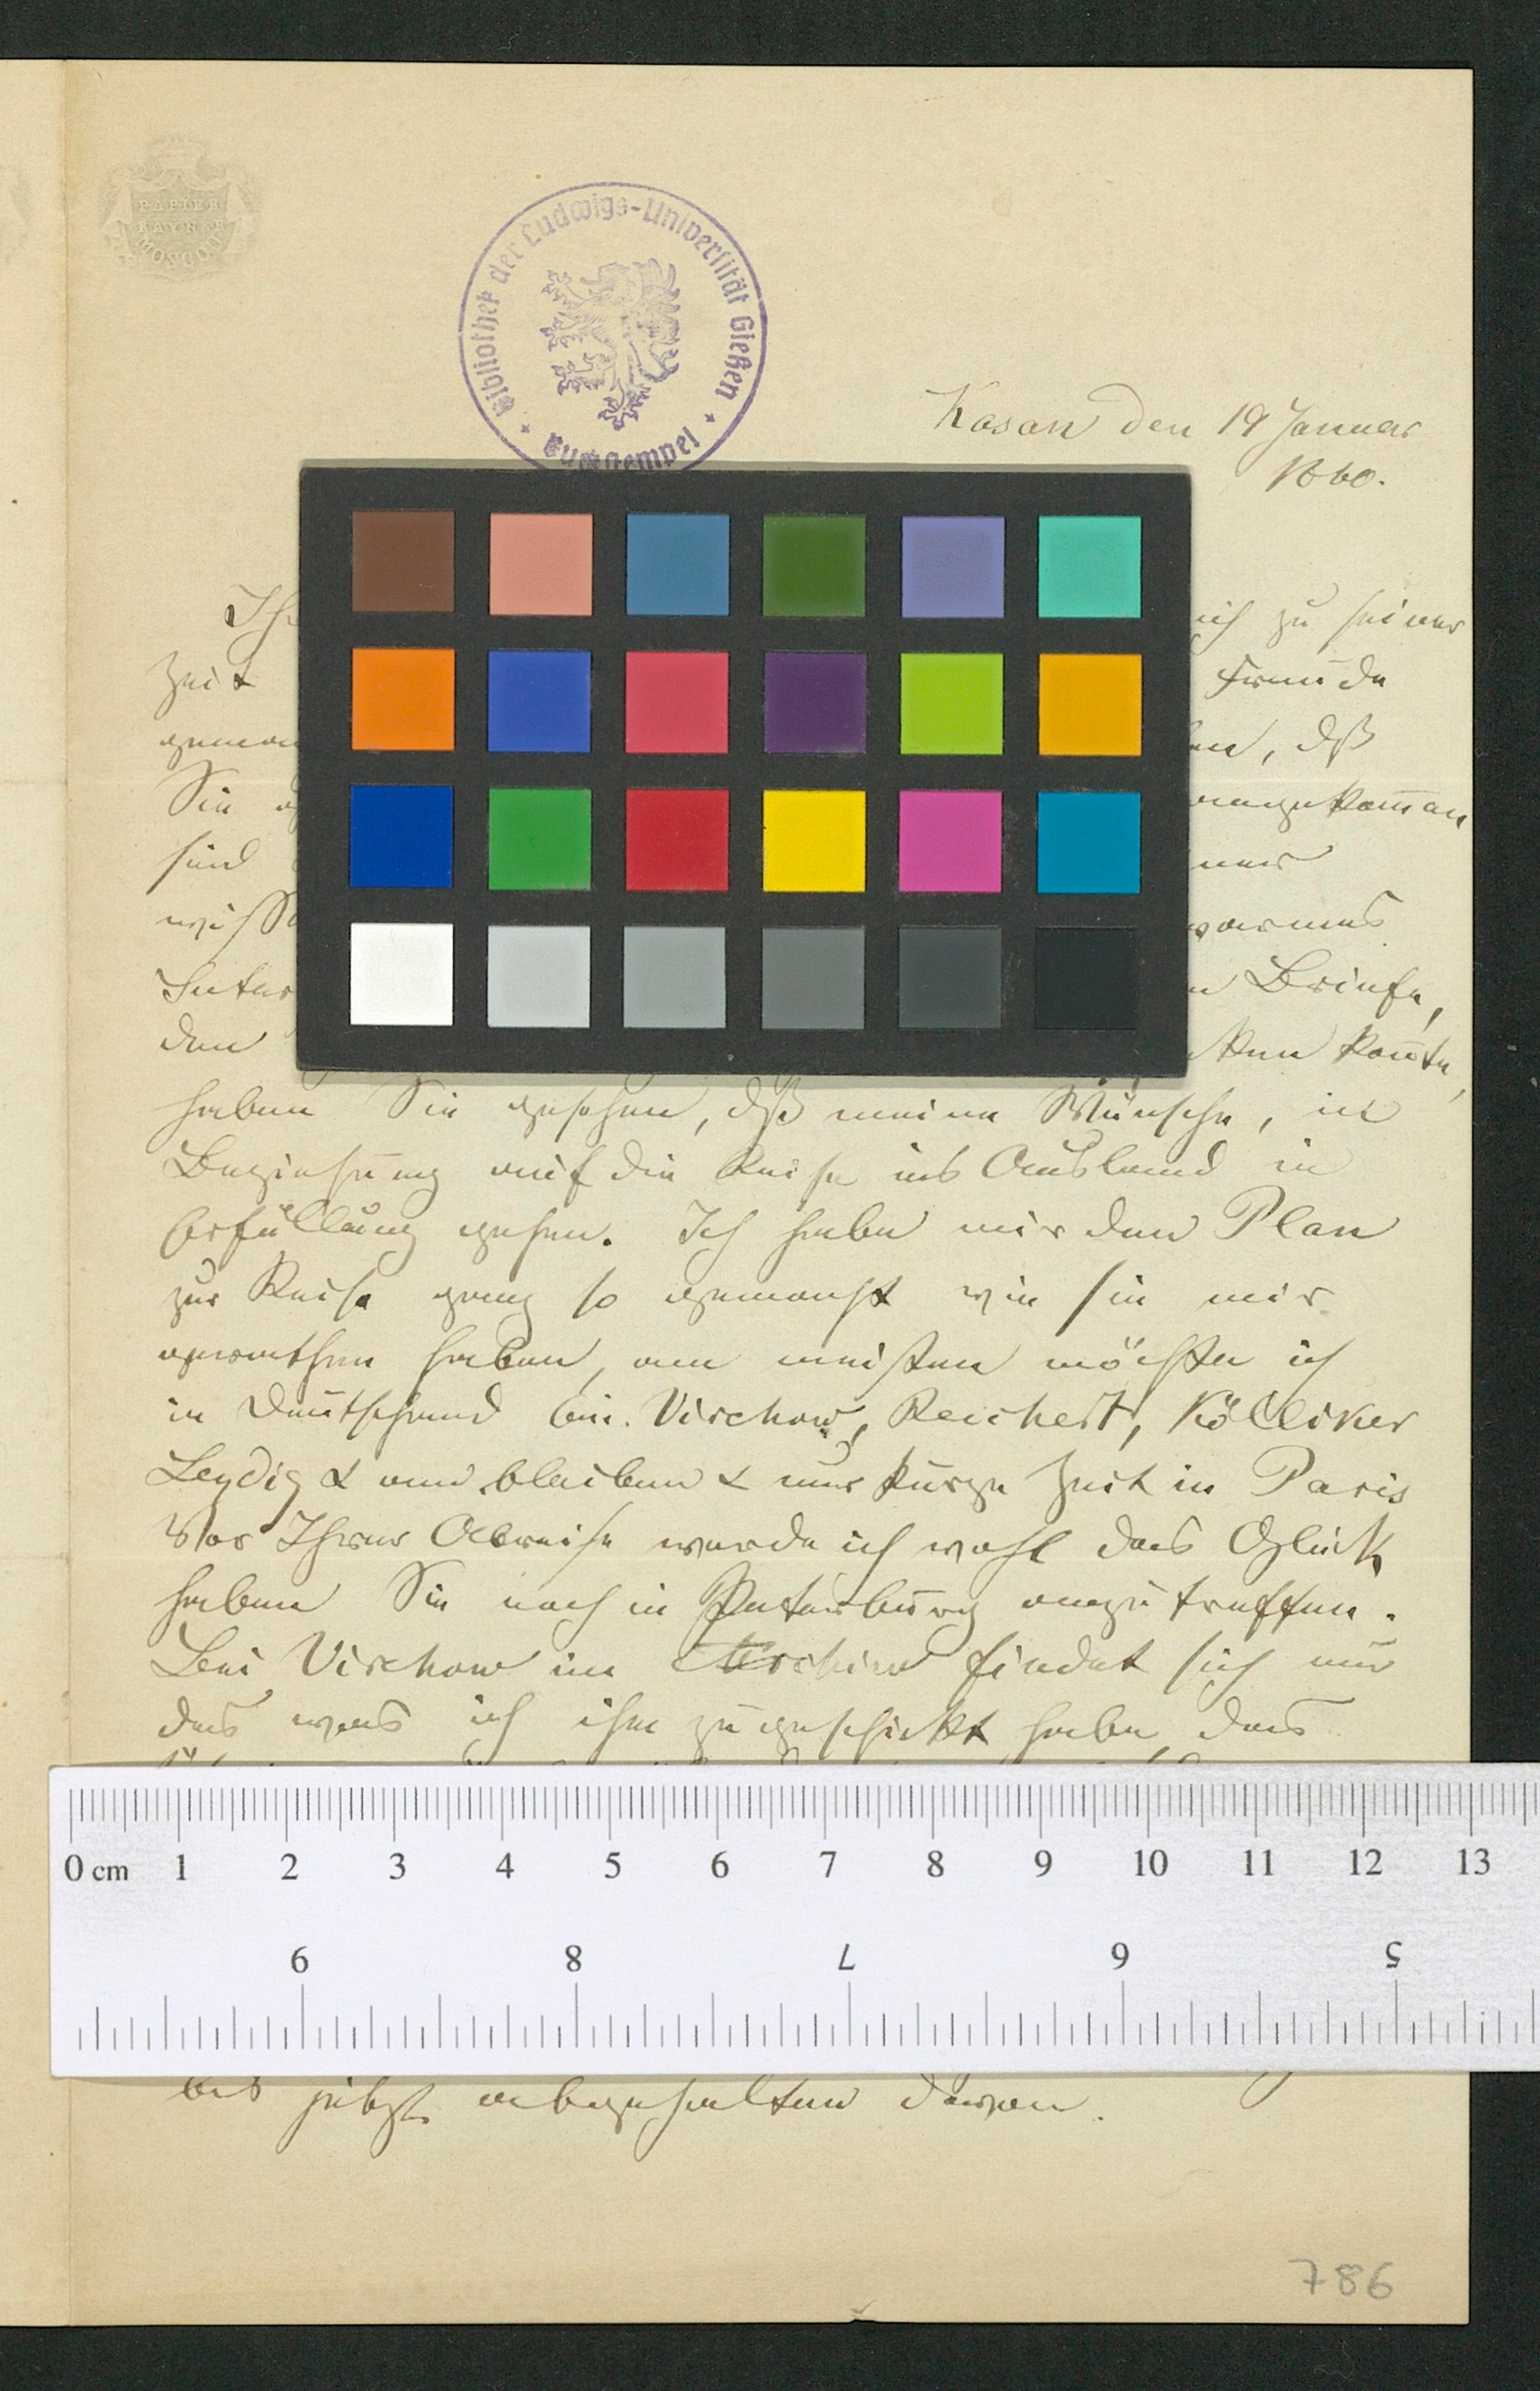 PAPIER
BAYNER
MOSCOU
Bibliothek der Ludwigs-Universität Gießen
Kasan den 19 Januar
1860.
Ih
ich zu seiner
Zeit
Freude
gemac
en, dß
Sie
angekom̄en
sind
wisse
warmes
Inter
n Briefe,
den
ken kon̄te,
haben Sie gesehen, dß meine Wünsche, in
Beziehung auf die Reise ins Ausland in
Erfüllung gehen. Ich habe mir den Plan
zur Reise ganz so gemacht wie sie mir
gerathen haben, am meisten möchte ich
in Deutschland bei Virchow, Reichert, Kölliker
Leydig & bleiben & nur kurze Zeit in Paris
Vor Ihrer Abreise werde ich wohl das Glück
haben Sie noch in Petersburg anzutreffen.
Bei Virchow im Archiv findet sich nur
das was ich ihm zugeschickt habe, das
0 cm 1 2 3 4 5 6 7 8 9 10 11 12 13
9 8 7 6 5
bis jetzt abgehalten davon.
786